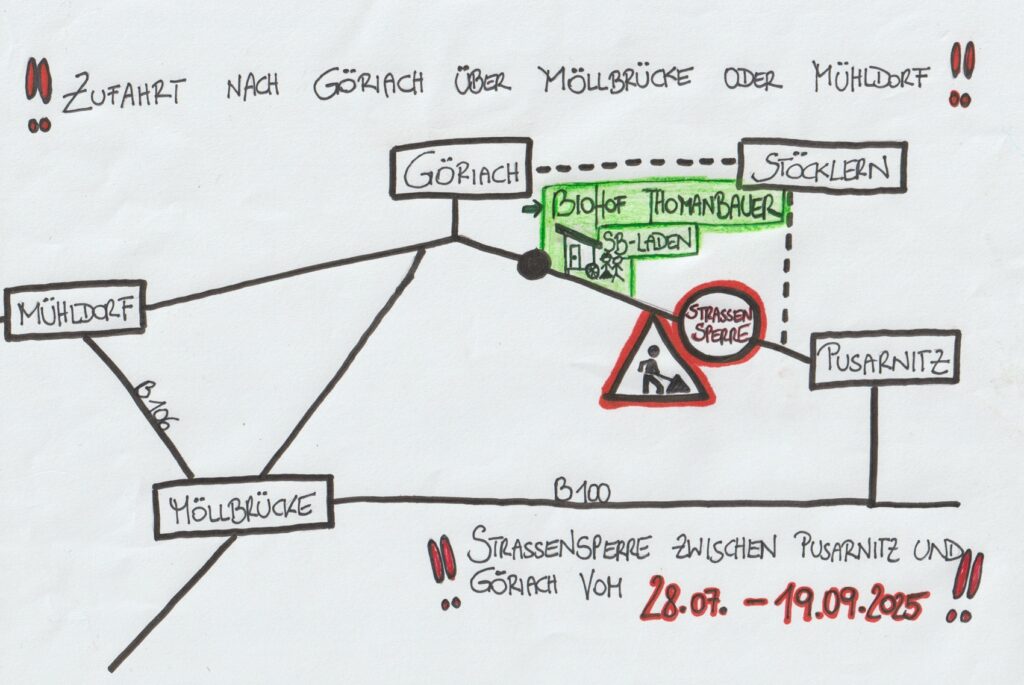 !! ZUFAHRT NACH GÖRIACH ÜBER MÖLLBRÜCKE ODER MÜHLDORF !!
GÖRIACH
STÖCKLERN
BIOHOF THOMANBAUER
SB-LADEN
MÜHLDORF
STRASSEN
SPERRE
PUSARNITZ
B106
B100
MÖLLBRÜCKE
!! STRASSENSPERRE ZWISCHEN PUSARNITZ UND !!
GÖRIACH VOM 28.07. - 19.09.2025